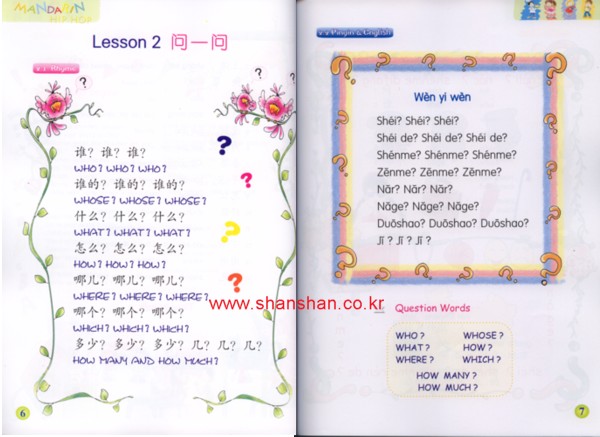 MANDARIN
HIP HOP
Lesson 2 问一问
2.1 Rhyme
谁？谁？谁？
WHO? WHO? WHO?
谁的？谁的？谁的？
WHOSE? WHOSE? WHOSE?
什么？什么？什么？
WHAT? WHAT? WHAT?
怎么？怎么？怎么？
HOW? HOW? HOW?
哪儿？哪儿？哪儿？
WHERE? WHERE? WHERE?
哪个？哪个？哪个？
WHICH? WHICH? WHICH?
多少？多少？多少？几？几？几？
HOW MANY AND HOW MUCH?
6
2.2 Pinyin & English
Wèn yi wèn
Shéi? Shéi? Shéi?
Shéi de? Shéi de? Shéi de?
Shénme? Shénme? Shénme?
Zěnme? Zěnme? Zěnme?
Nǎr? Nǎr? Nǎr?
Nǎge? Nǎge? Nǎge?
Duōshao? Duōshao? Duōshao?
Jǐ? Jǐ? Jǐ?
www.shanshan.co.kr
Question Words
WHO? WHOSE?
WHAT? HOW?
WHERE? WHICH?
HOW MANY?
HOW MUCH?
7